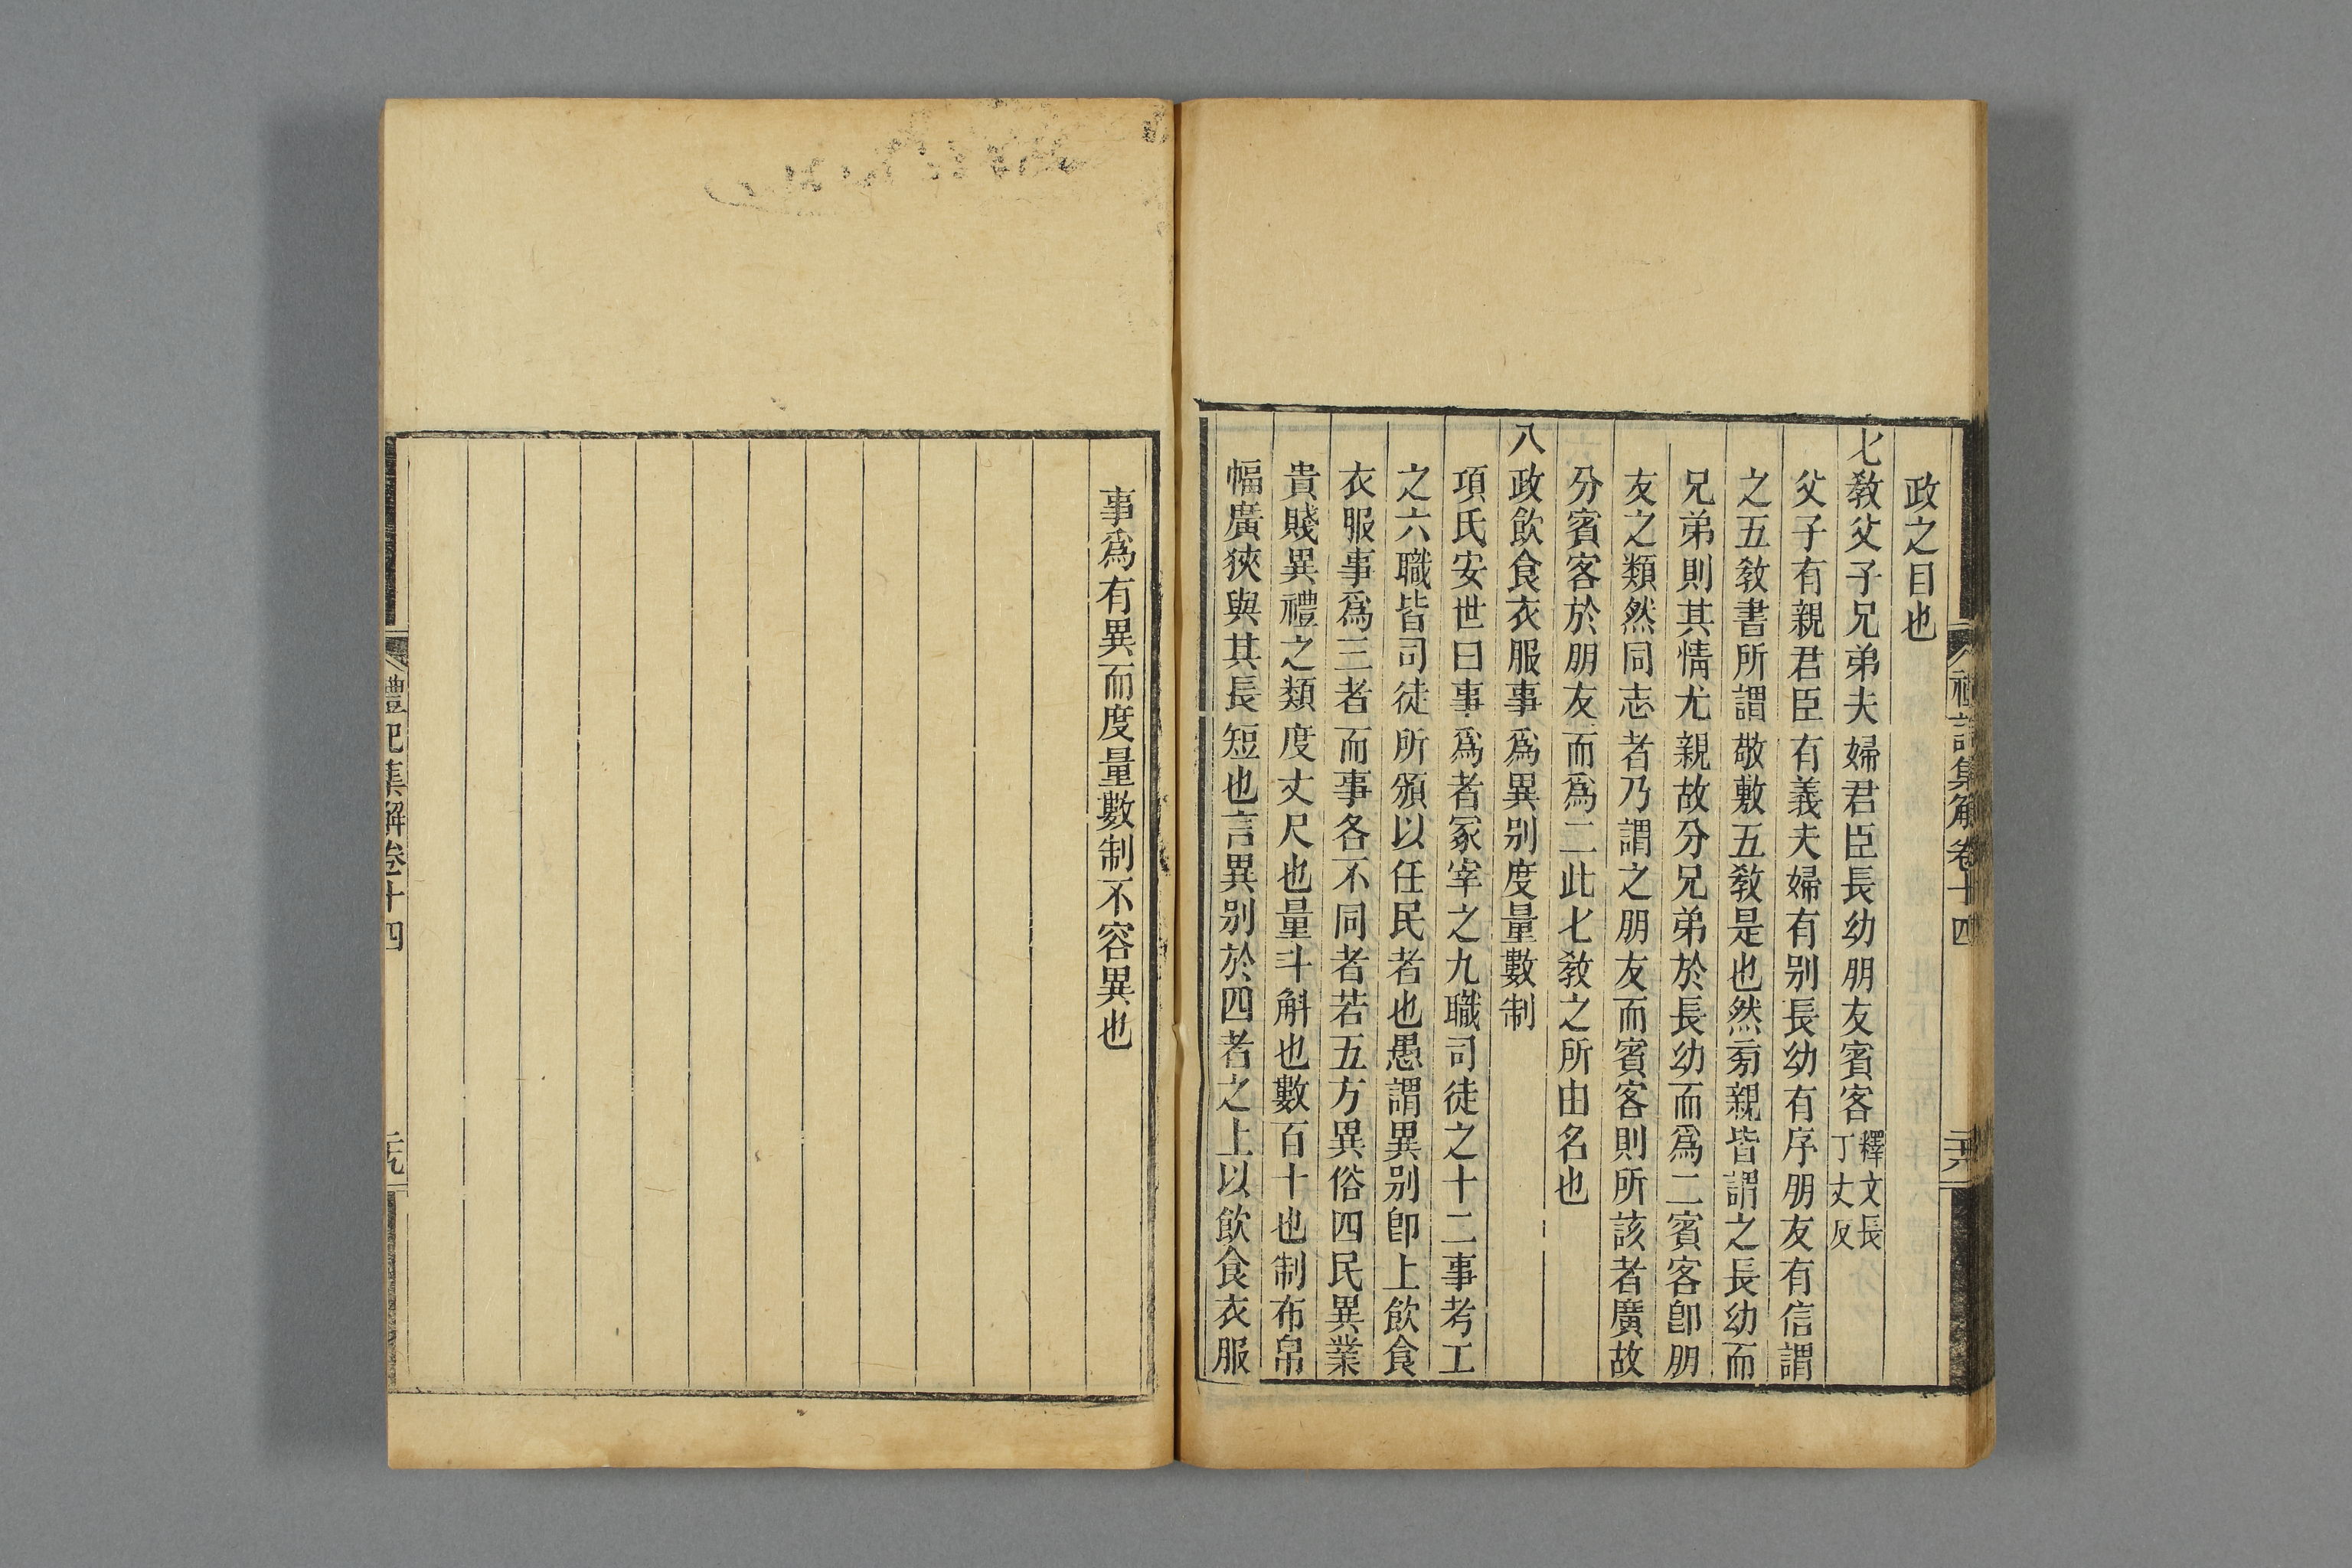 政之目也
七敎父子兄弟夫婦君臣長幼朋友賓客釋文長丁丈反
父子有親君臣有義夫婦有别長幼有序朋友有信謂
之五敎書所謂敬敷五敎是也然旁親皆謂之長幼而
兄弟則其情尤親故分兄弟於長幼而爲二賓客卽朋
友之類然同志者乃謂之朋友而賓客則所該者廣故
分賓客於朋友而爲二此七敎之所由名也
八政飮食衣服事爲異别度量數制
項氏安世曰事爲者冢宰之九職司徒之十二事考工
之六職皆司徒所頒以任民者也愚謂異别卽上飮食
衣服事爲三者而事各不同者若五方異俗四民異業
貴賤異禮之類度丈尺也量斗斛也數百十也制布帛
幅廣狹與其長短也言異别於四者之上以飮食衣服
事爲有異而度量數制不容異也
禮記集解卷十四
禮記集解卷十四